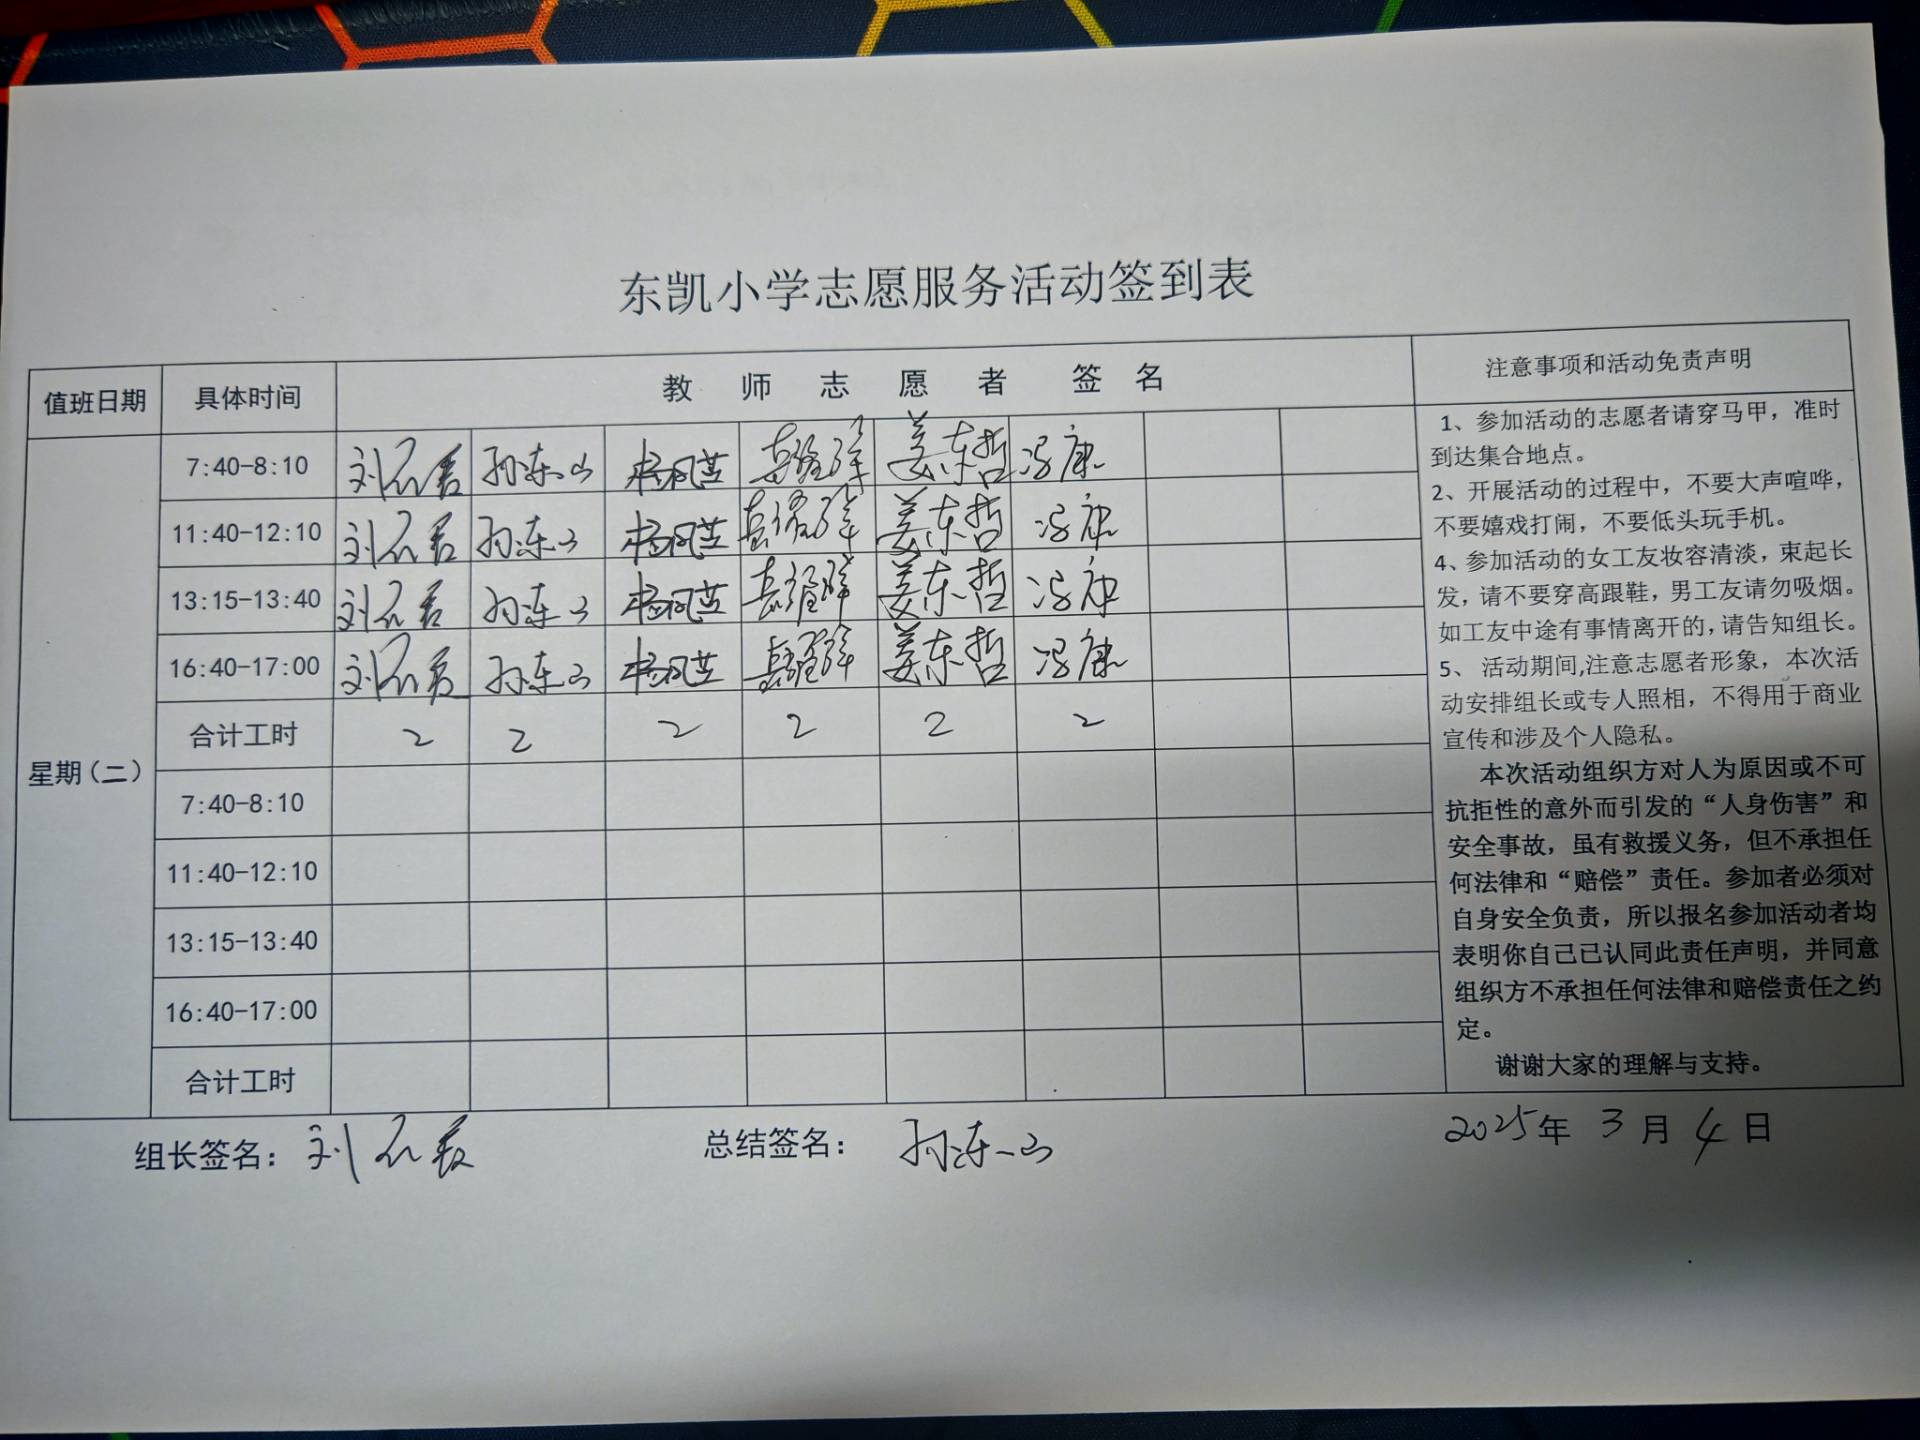 东凯小学志愿服务活动签到表
值班日期 具体时间 教师志愿者 签名 注意事项和活动免责声明
星期(二)
7:40-8:10 孙东山 杨枫芸 姜东哲 冯康
11:40-12:10 孙东山 杨枫芸 姜东哲 冯康
13:15-13:40 孙东山 杨枫芸 姜东哲 冯康
16:40-17:00 孙东山 杨枫芸 姜东哲 冯康
合计工时 2 2 2 2 2 2
7:40-8:10
11:40-12:10
13:15-13:40
16:40-17:00
合计工时
1、参加活动的志愿者请穿马甲，准时
到达集合地点。
2、开展活动的过程中，不要大声喧哗，
不要嬉戏打闹，不要低头玩手机。
4、参加活动的女工友妆容清淡，束起长
发，请不要穿高跟鞋，男工友请勿吸烟。
如工友中途有事情离开的，请告知组长。
5、 活动期间,注意志愿者形象，本次活
动安排组长或专人照相，不得用于商业
宣传和涉及个人隐私。
本次活动组织方对人为原因或不可
抗拒性的意外而引发的“人身伤害”和
安全事故，虽有救援义务，但不承担任
何法律和“赔偿”责任。参加者必须对
自身安全负责，所以报名参加活动者均
表明你自己已认同此责任声明，并同意
组织方不承担任何法律和赔偿责任之约
定。
谢谢大家的理解与支持。
组长签名： 总结签名： 孙东山 2025年 3月 4日